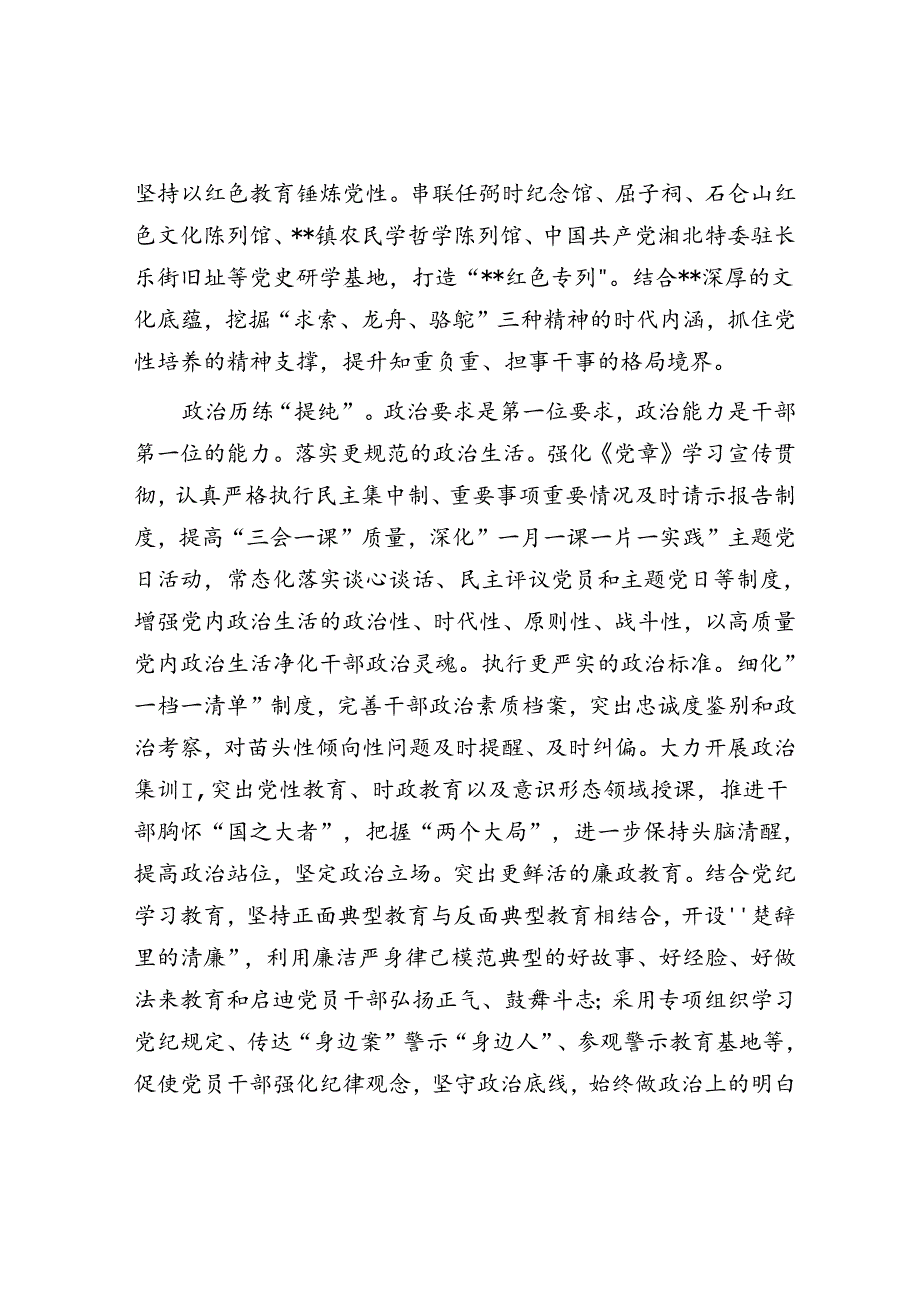 坚持以红色教育锤炼党性。串联任弼时纪念馆、屈子祠、石仑山红
色文化陈列馆、**镇农民学哲学陈列馆、中国共产党湘北特委驻长
乐街旧址等党史研学基地，打造“**红色专列"。结合**深厚的文
化底蕴，挖掘“求索、龙舟、骆鸵”三种精神的时代内涵，抓住党
性培养的精神支撑，提升知重负重、担事干事的格局境界。
政治历练“提纯”。政治要求是第一位要求，政治能力是干部
第一位的能力。落实更规范的政治生活。强化《党章》学习宣传贯
彻，认真严格执行民主集中制、重要事项重要情况及时请示报告制
度，提高“三会一课”质量，深化”一月一课一片一实践”主题党
日活动，常态化落实谈心谈话、民主评议党员和主题党日等制度，
增强党内政治生活的政治性、时代性、原则性、战斗性，以高质量
党内政治生活净化干部政治灵魂。执行更严实的政治标准。细化”
一档一清单”制度，完善干部政治素质档案，突出忠诚度鉴别和政
治考察，对苗头性倾向性问题及时提醒、及时纠偏。大力开展政治
集训I,突出党性教育、时政教育以及意识形态领域授课，推进干
部胸怀“国之大者”，把握“两个大局”，进一步保持头脑清醒，
提高政治站位，坚定政治立场。突出更鲜活的廉政教育。结合党纪
学习教育，坚持正面典型教育与反面典型教育相结合，开设''楚辞
里的清廉”，利用廉洁严身律己模范典型的好故事、好经验、好做
法来教育和启迪党员干部弘扬正气、鼓舞斗志；采用专项组织学习
党纪规定、传达“身边案”警示“身边人”、参观警示教育基地等，
促使党员干部强化纪律观念，坚守政治底线，始终做政治上的明白